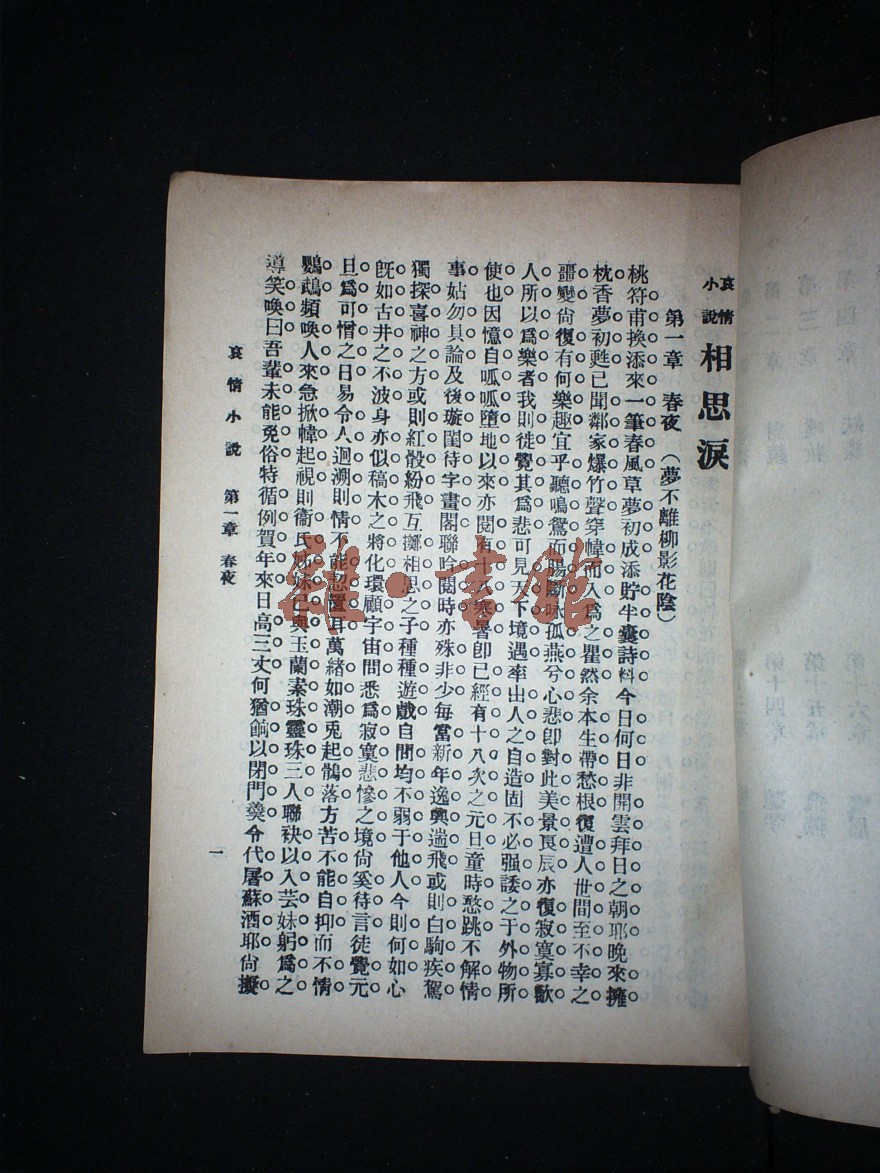 哀情小說 相思淚
第一章 春夜（夢不離柳影花陰）
桃符甫換添來一筆春風草夢初成添貯半囊詩料今日何日非開雲拜日之朝耶晚來擁
枕香夢初甦已聞鄰家爆竹聲穿幃而入爲之瞿然余本生帶愁根復遭人世間至不幸之
噩變尙復有何樂趣宜乎聽鳴鴛而腸斷咏孤燕兮心悲卽對此美景良辰亦復寂寞寡歡
人所以爲樂者我則徒覺其爲悲可見天下境遇率出人之自造固不必强諉之于外物所
使也因憶自呱呱墮地以來亦閱有十八寒暑卽已經有十八次之元日童時憨跳不解情
事姑勿具論及後璇閨待字畫閣聯吟閱時亦殊非少每當新年逸興遄飛或則白駒疾駕
獨探喜神之方或則紅骰紛飛互擲相思之子種種遊戲自問均不弱于他人今則何如心
旣如古井之不波身亦似稿木之將化環顧宇宙間悉爲寂寞悲慘之境尙奚待言徒覺元
旦爲可憎之日易令人迴溯則情不能恝置耳萬緒如潮兎起鶻落方苦不能自抑而不情
鸚鵡頻喚人來急掀幃起視則衞氏姊妹已與玉蘭素珠靈珠三人聯袂以入芸妹躬爲之
導笑喚曰吾輩未能免俗特循例賀年來日高三丈何猶餉以閉門羹令代屠蘇酒耶尙擬
哀情小說 第一章 春夜
一
雜·書館
第十四章
第十五章
第十六章